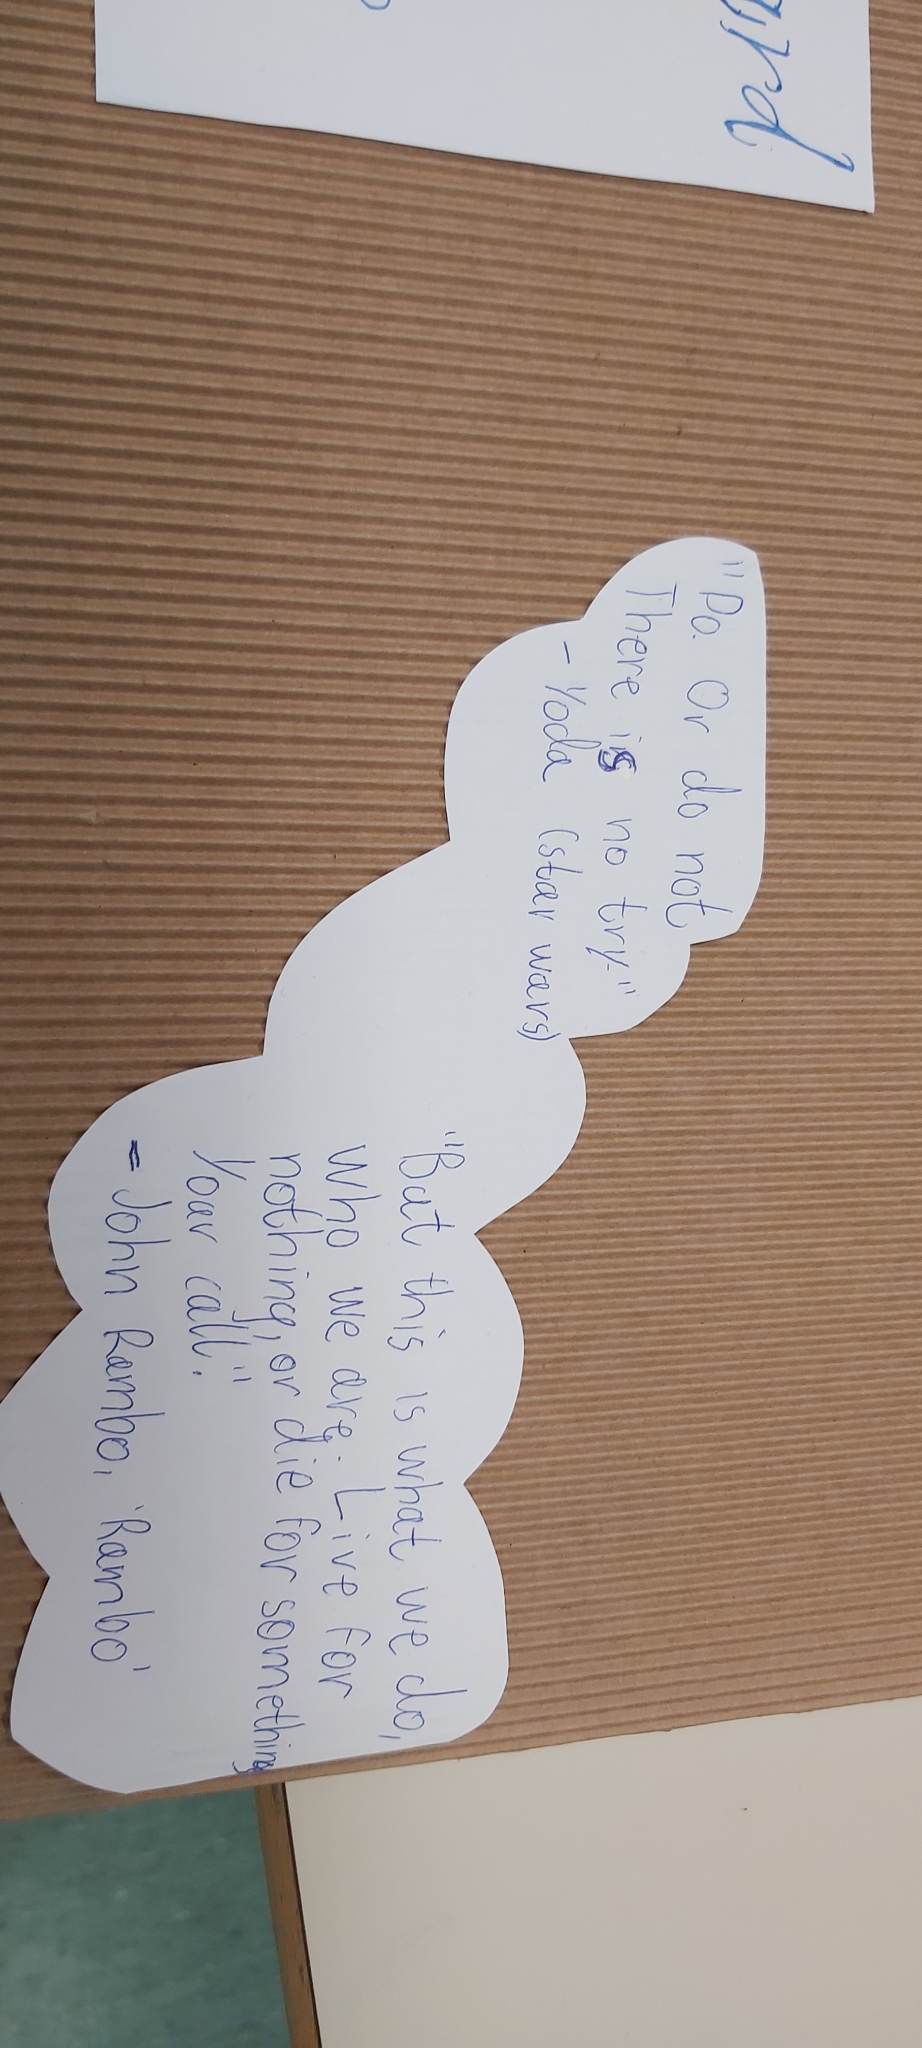 "Do. Or do not
There is no try."
- Yoda (star wars)
"But this is what we do,
who we are. Live for
nothing, or die for something
Your call."
- John Rambo, 'Rambo'